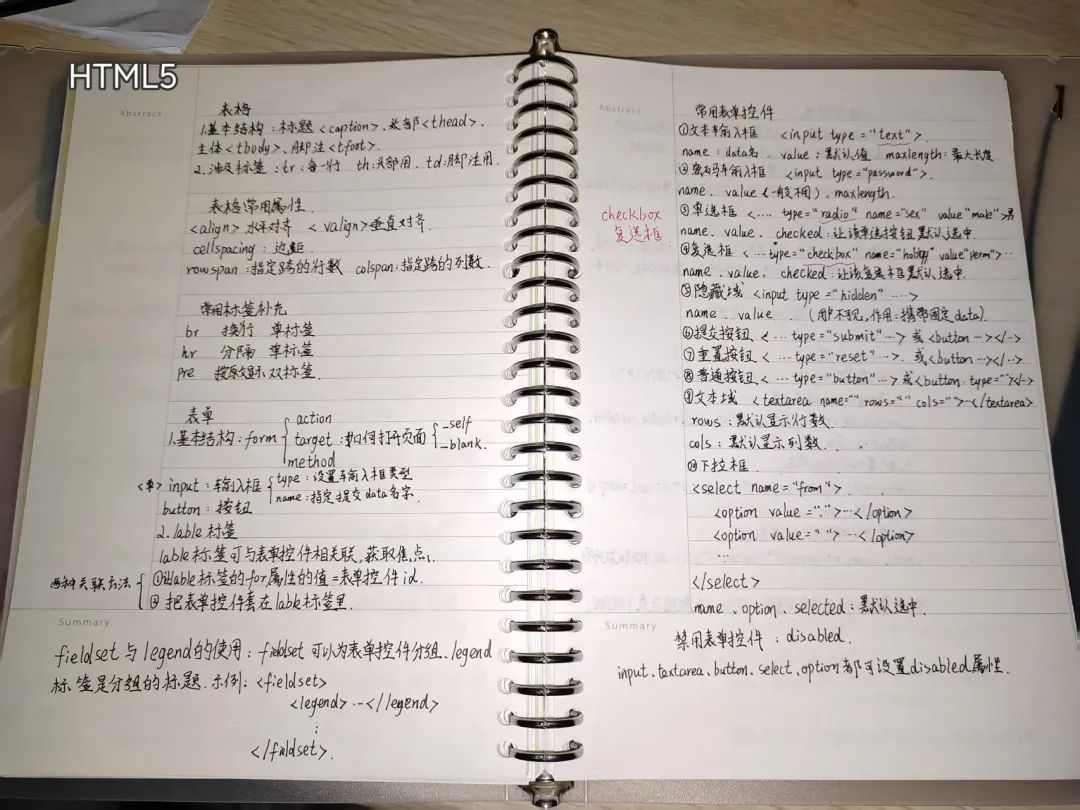 HTML5
Abstract
表格
1.基本结构：标题<caption>、头部<thead>.
主体<tbody>、脚注<tfoot>.
2.涉及标签：tr：每一行 th:头部用、td:脚注用.
表格常用属性.
<align>水平对齐 <valign>垂直对齐.
cellspacing：边距.
rowspan：指定跨的行数 colspan:指定跨的列数.
常用标签补充
br 换行 单标签
hr 分隔 单标签
pre 按原文显示 双标签.
表单
1.基本结构：form { action
target：如何打开页面 { _self
_blank.
method
<单> input：输入框 { type：设置输入框类型
name：指定提交data名字.
button：按钮
2.lable标签
lable标签可与表单控件相关联,获取焦点.
两种关联方法 { ①lable标签的for属性的值=表单控件id.
② 把表单控件套在lable标签里.
Summary
fieldset与legend的使用：fieldset可以为表单控件分组、legend
标签是分组的标题.示例：<fieldset>
<legend>…</legend>
⋮
</fieldset>.
Abstract
常用表单控件
①文本输入框 <input type="text">.
name：data名. value：默认值 maxlength：最大长度
②密码输入框 <input type="password">.
name、value（一般不用）、maxlength.
checkbox
复选框
③单选框 <.... type="radio" name="sex" value"male">男
name、value、checked：让该单选按钮默认选中.
④复选框 <...type="checkbox" name="hobby" value"perm">…
name、value、checked：让该复选框默认选中.
⑤隐藏域 <input type="hidden" ....>
name、value、（用户不可见,作用：携带固定data）.
⑥提交按钮 <… type="submit"…>或<button…></…>
⑦重置按钮 <… type="reset"…>.或<button…></…>
⑧普通按钮 <… type="button"…>或<button type=""></…>
⑨文本域 <textarea name="" rows="" cols="">…</textarea>
rows：默认显示行数.
cols：默认显示列数.
⑩下拉框.
<select name="from">
<option value="">…</option>
<option value="">…</option>
…
</select>
name、option、selected：默认选中.
Summary
禁用表单控件：disabled.
input、textarea、button、select、option都可设置disabled属性.